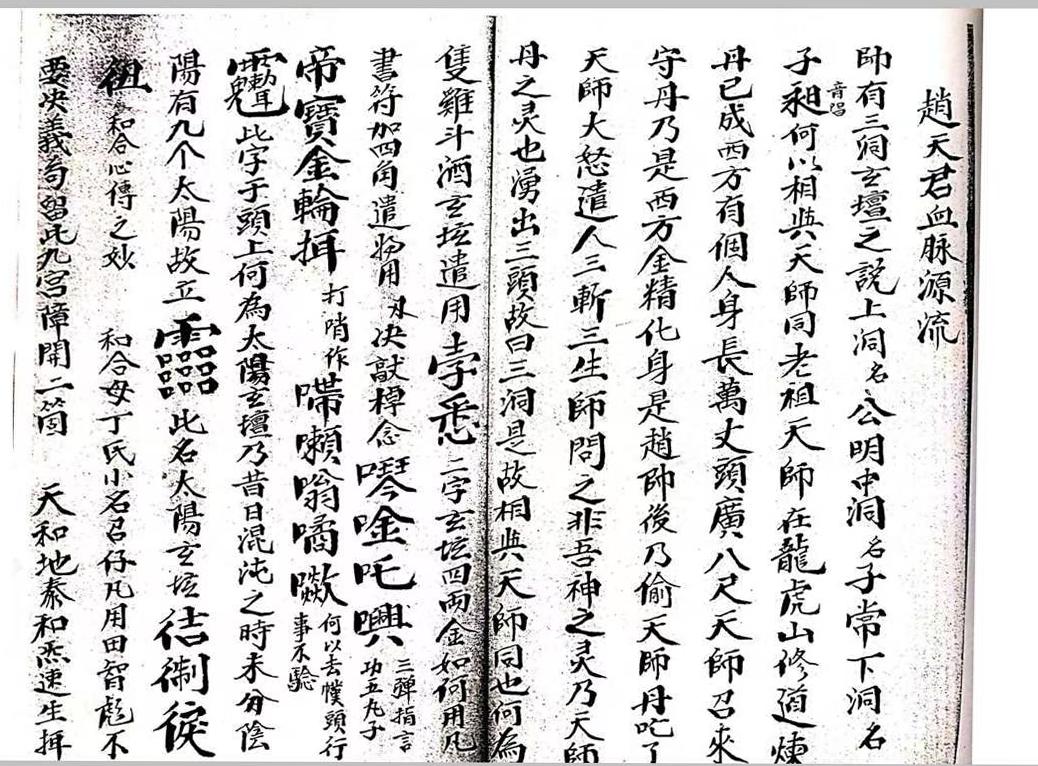 趙天君血脉源流
帥有三洞玄壇之説上洞名公明中洞名子常下洞名
子昶音昌何以相與天師同老祖天師在龍虎山修道煉
丹已成西方有個人身長萬丈頭廣八尺天師召來
守丹乃是西方金精化身是趙帥後乃偷天師丹吃了
天師大怒遣人三斬三生師問之非吾神之灵乃天師
丹之灵也湧出三頭故曰三洞是故相與天師同也何為
隻雞斗酒玄坛遣用 二字玄坛四両金如何用凡
書符加四角遣將用 决敲棹念 金吒 三弹指言功五九子
帝寶金輪揖打哨作 嗡噊 何以去幞頭行事不驗
此字于頭上何為太陽玄壇乃昔日混沌之時未分陰
陽有九个太陽故立靐此名太陽玄坛
和合心傳之妙 和合母丁氏小名召仔凡用田智彪不
要决義勾留此九宮障開二箇 天和地泰和炁速生揖